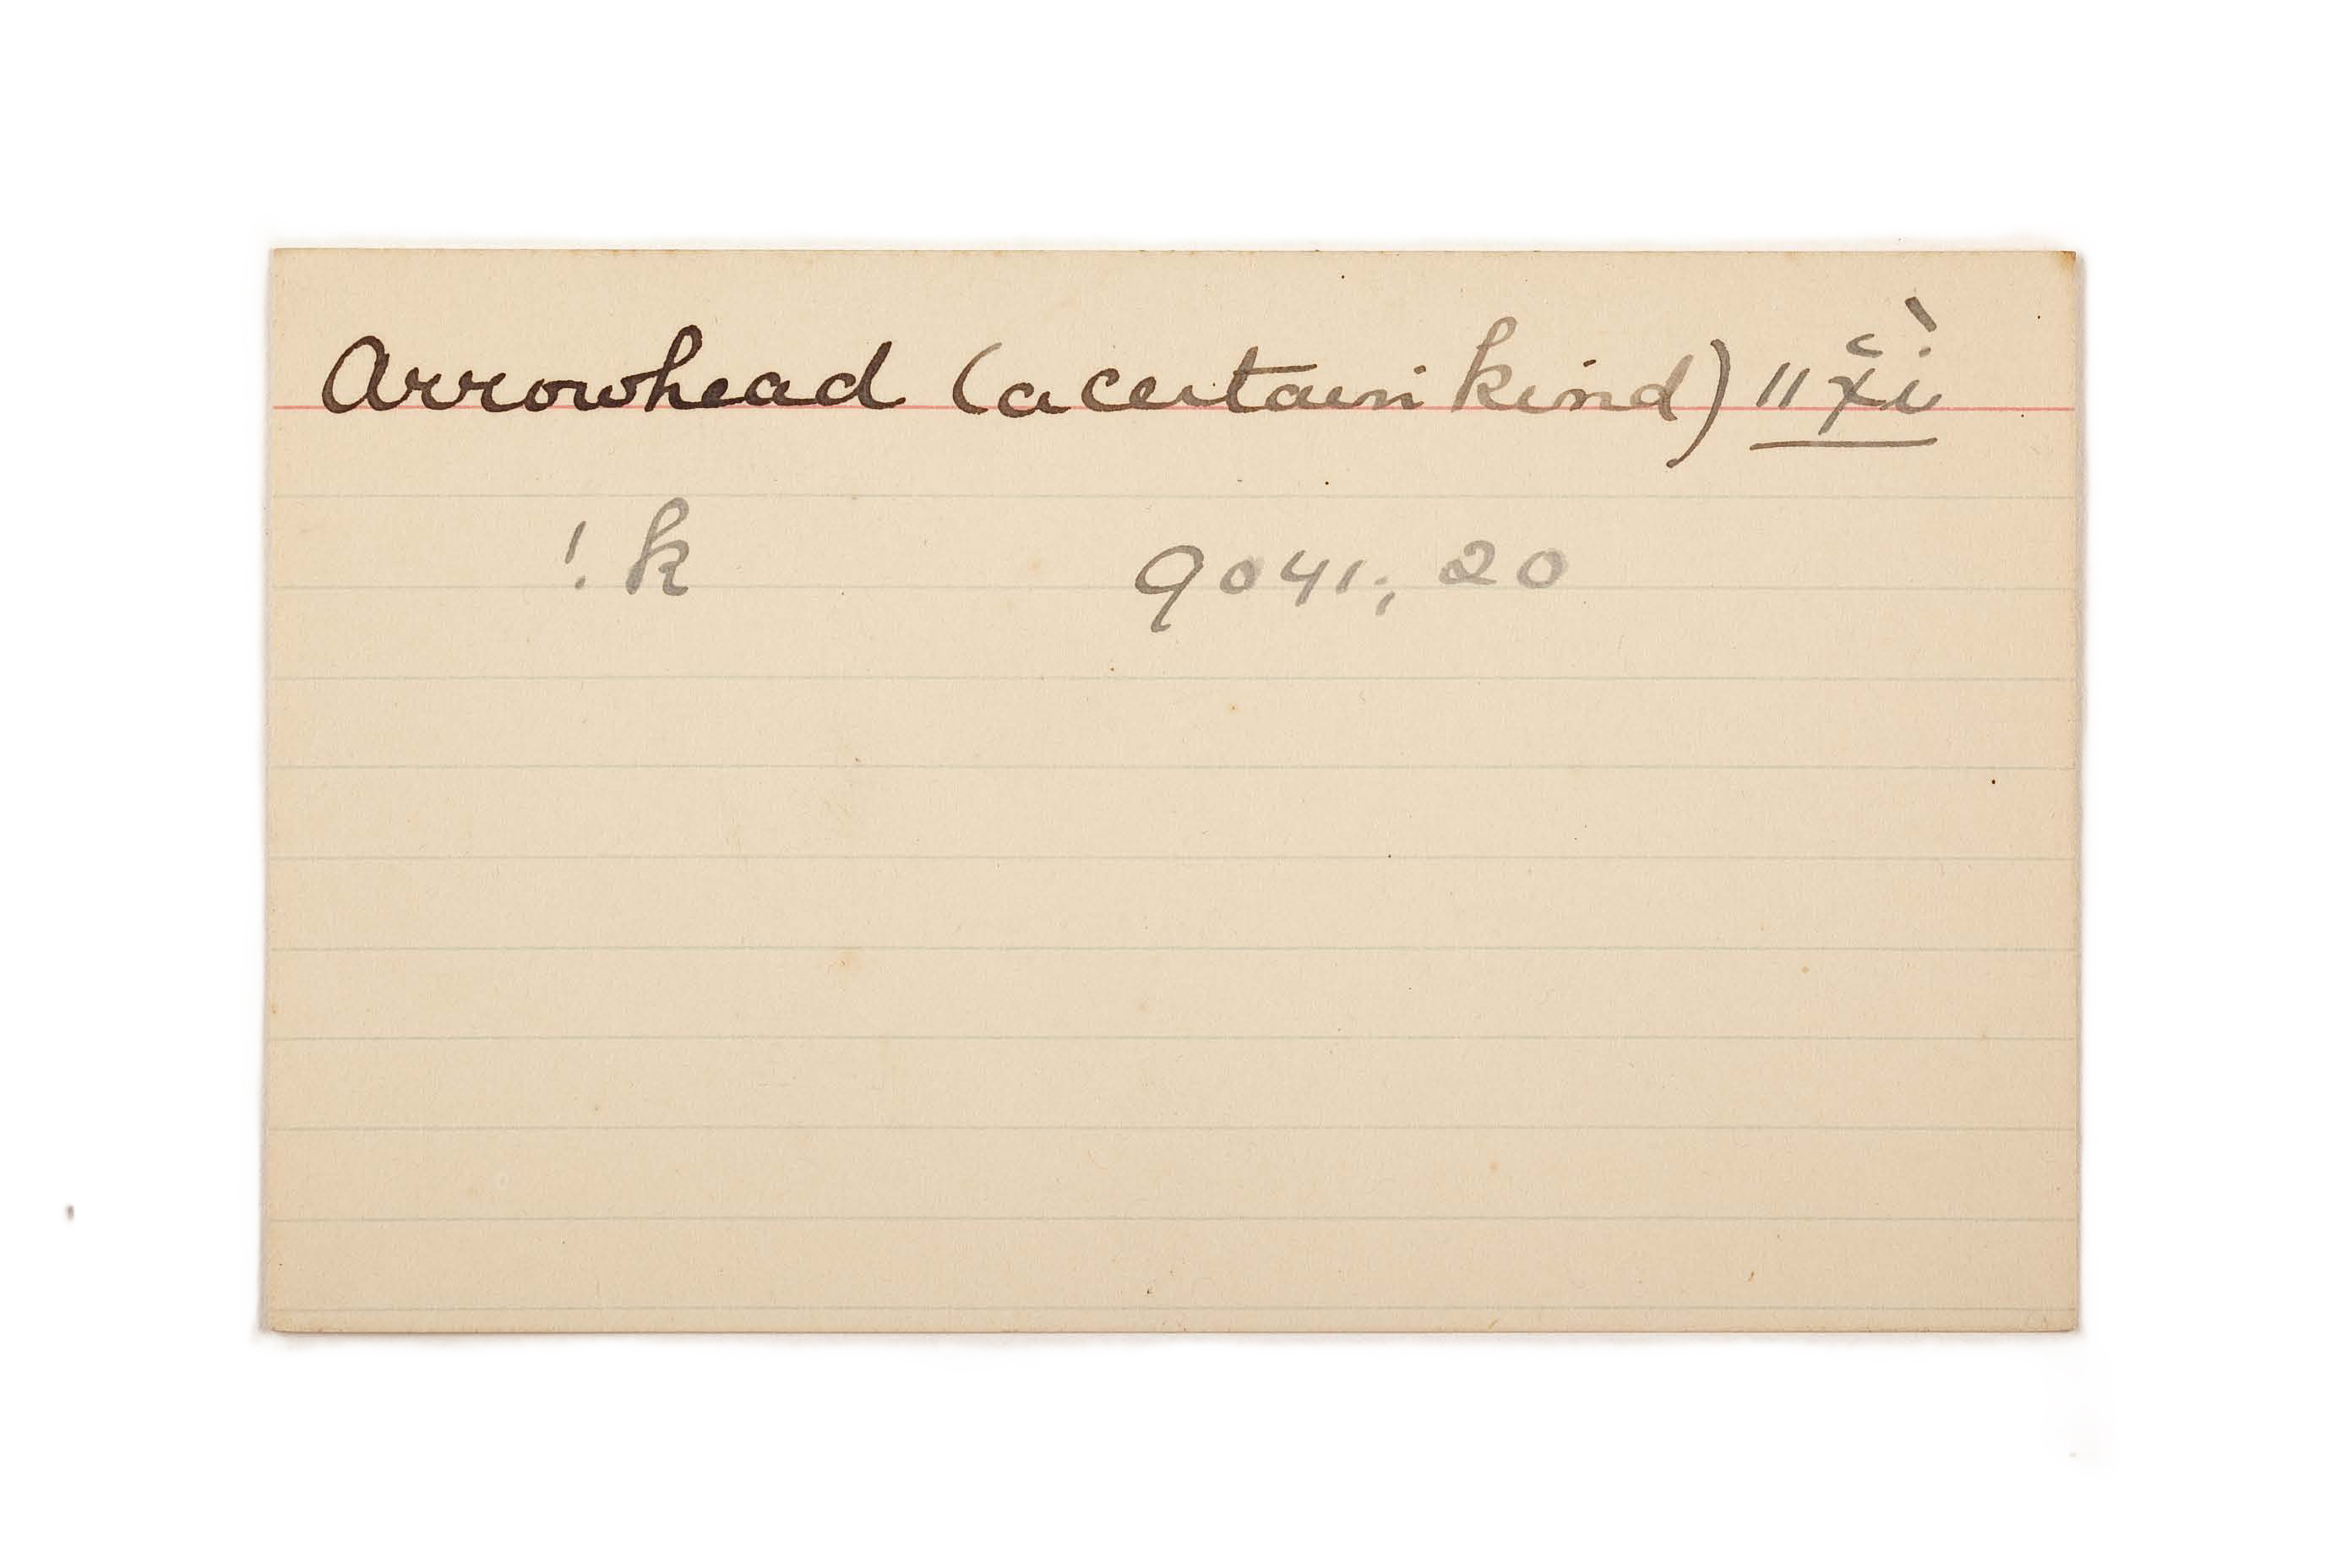 Arrowhead (a certain kind) ||x̆ì
!k 9041; 20